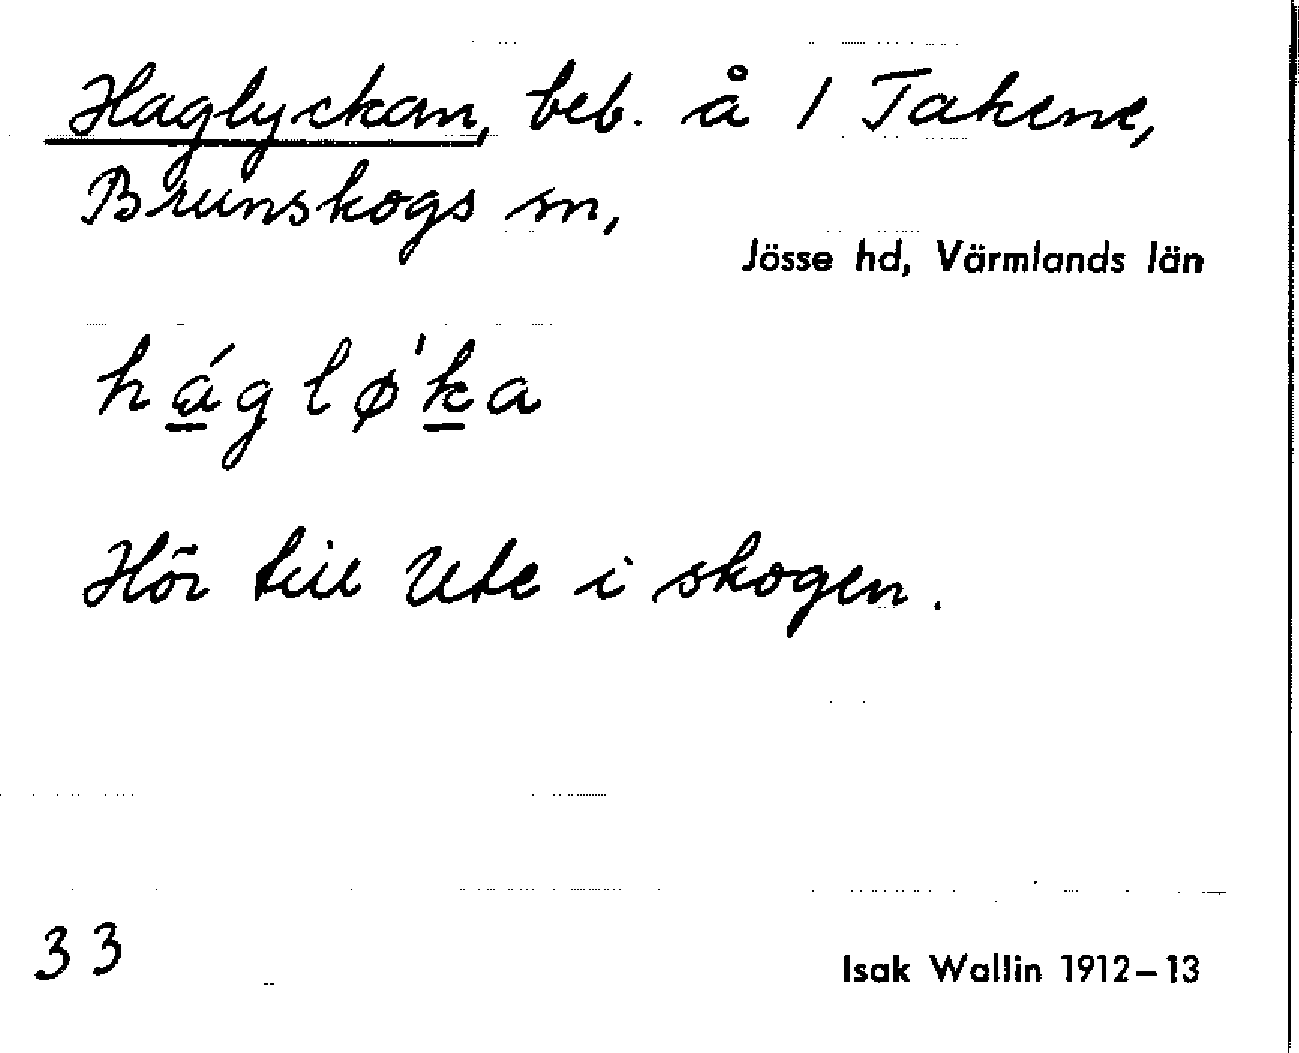 Haglyckan, beb. å 1 Takene,
Brunskogs sn,
Jösse hd, Värmlands län
háglø'ka
Hör till Ute i skogen.
33
Isak Wallin 1912–13